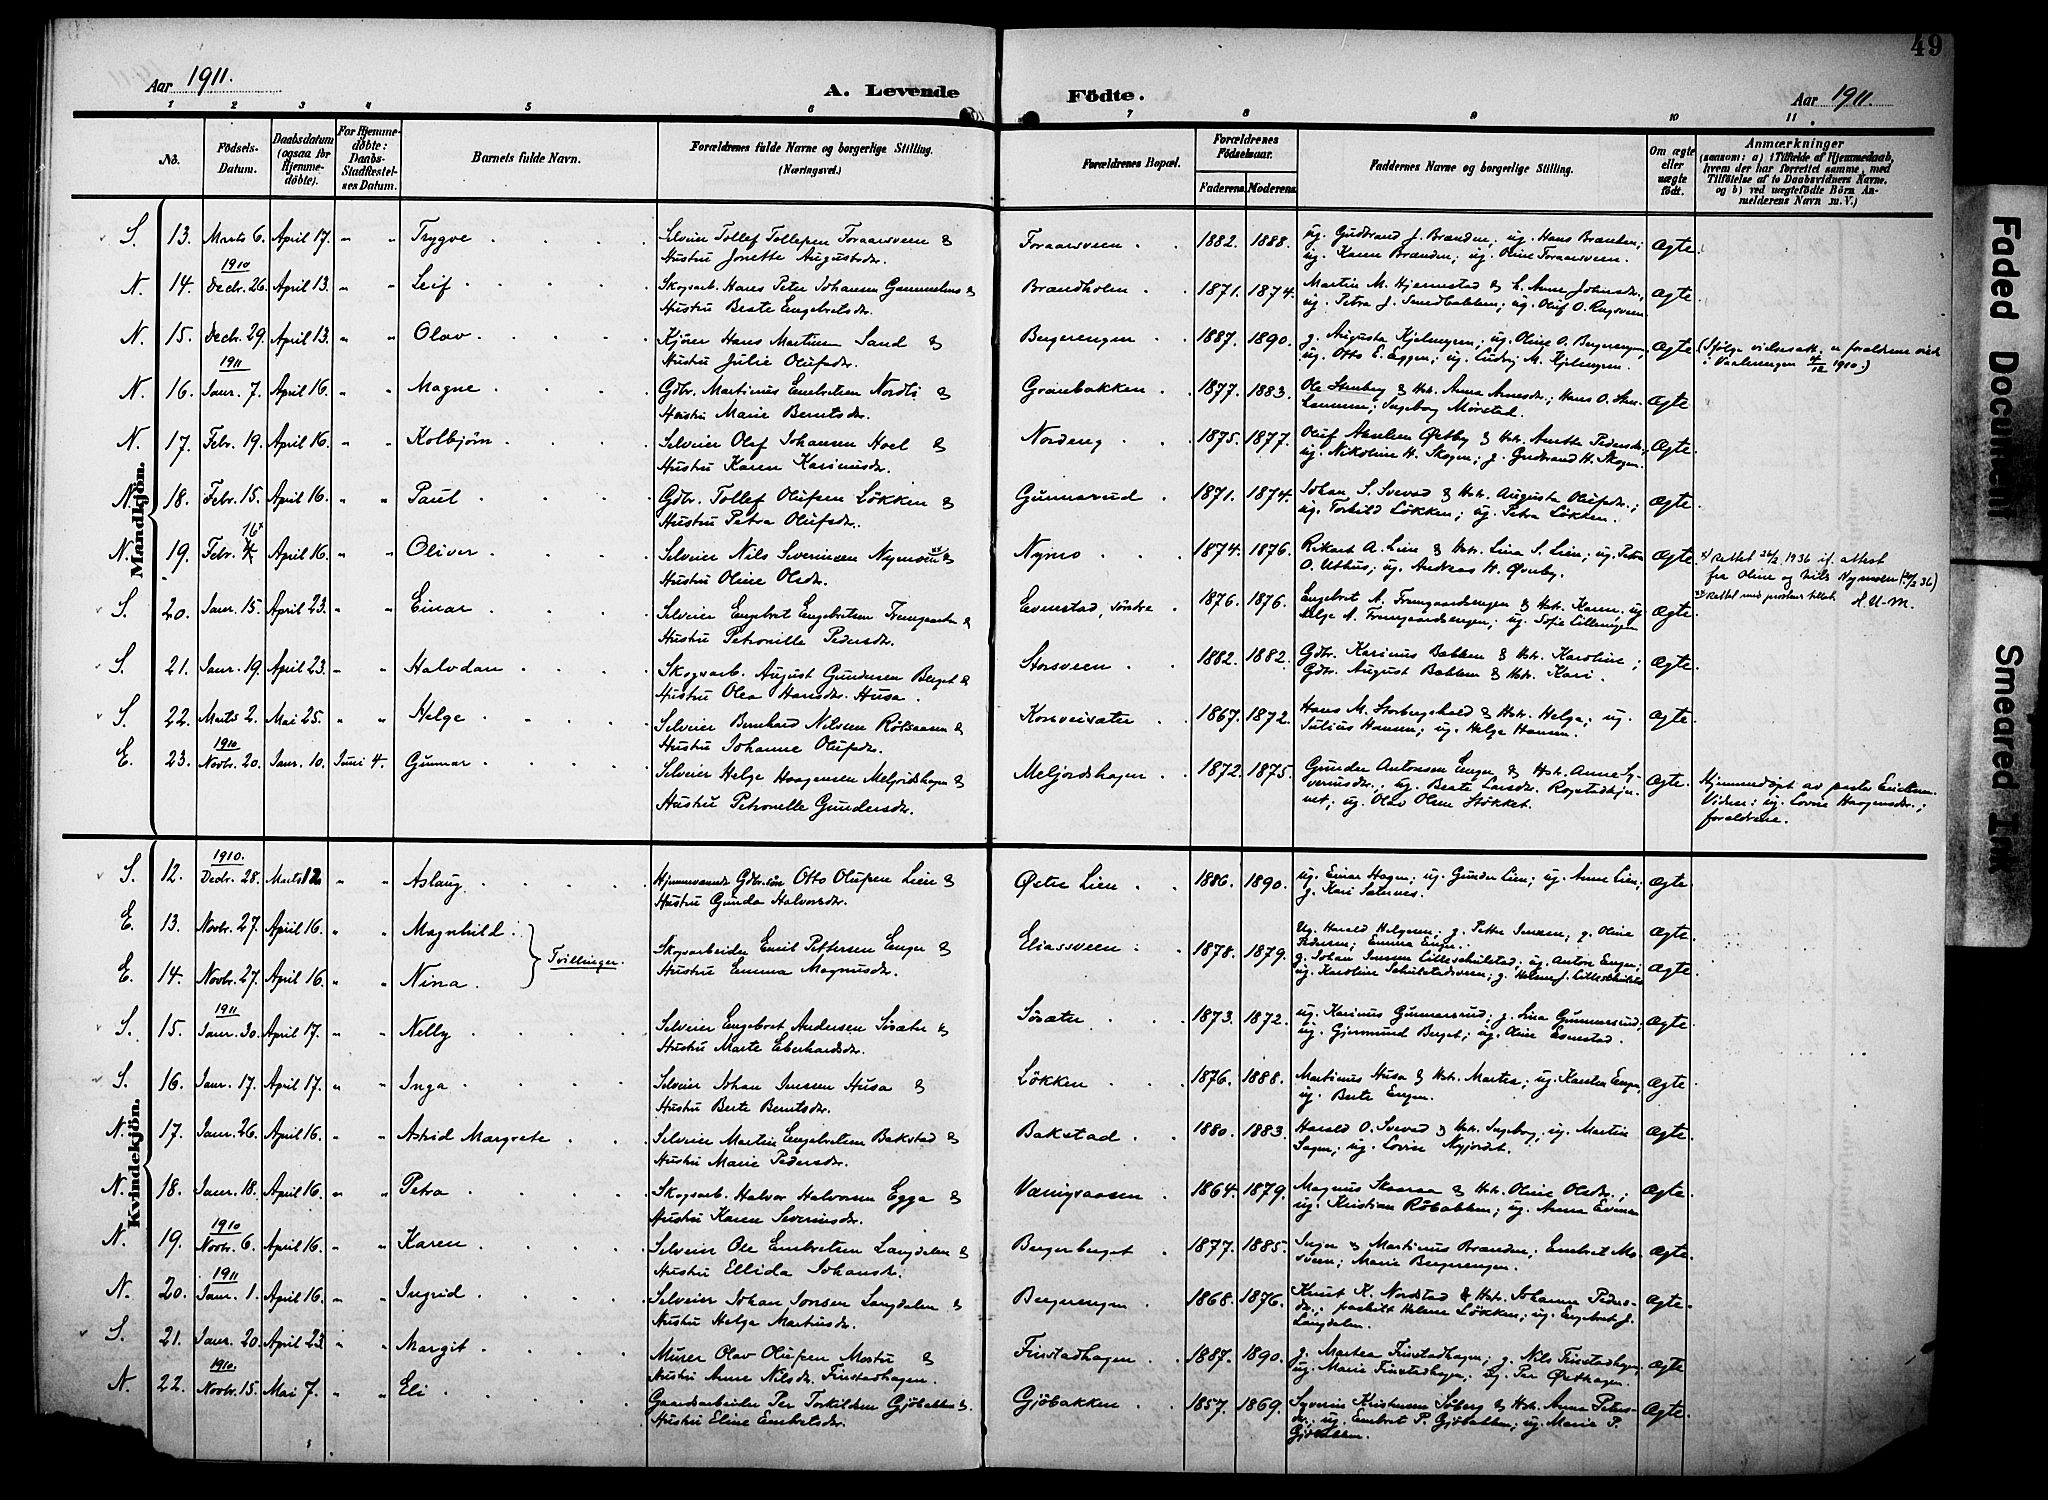 49
Aar 1911.
A. Levende Födte.
Aar 1911.
1 2 3 4 5 6 7 8 9 10 11
No.
Födsels-Datum.
Daabsdatum (ogsaa for Hjemmedöbte).
For Hjemmedöbte: Daabs-Stadfæstelses Datum.
Barnets fulde Navn.
Forældrenes fulde Navne og borgerlige Stilling. (Næringsvei.)
Forældrenes Bopæl.
Forældrenes Födselsaar.
Faderens. Moderens.
Faddernes Navne og borgerlige Stilling.
Om ægte eller uægte födt.
Anmærkninger
(saasom: a) i Tilfælde af Hjemmedaab, hvem der har forrettet samme, med Tilföielse af to Daabsvidners Navne, og b) ved uægtefödte Börn Anmelderens Navn m. V.)
Mandkjön.
S. 13. Marts 6. April 17. " " Trygve
Selveier Tollef Tollefsen Foraarsveen &
Hustru Jonette Augustsdr.
Foraarsveen 1882. 1888.
ug. Gudbrand J. Brænden; ug. Hans Brænden;
ug. Karen Brænden; ug. Oline Foraarsveen. Ægte.
1910
N. 14. Decbr. 26. April 13. " " Leif
Skogsarb. Hans Peter Johansen Gammelmo &
Hustru Berte Engebretsdr.
Brandholen 1871. 1874.
Martin M. Hjernestad & h. Anne Johnsdr.;
ug. Petra J. Smedbakken; ug. Oluf O. Rugsveen Ægte.
N. 15. Decbr. 29. April 13. " " Olav
Kjører Hans Martinsen Sand &
Hustru Julie Olufsdr.
Bergerengen 1887. 1890.
g. Augusta Kjelengren; ug. Oline O. Bergerengen;
ug. Otto E. Eggen; ug. Ludvig M. Kjelengren. Ægte.
(Ifølge vielsesatt. er forældrene viet
i Vaalerengen 1910.)
1911
N. 16. Janr. 7. April 16. " " Magne
Gdbr. Martinus Embretsen Nordli &
Hustru Marie Berntsdr.
Granebakken 1877. 1883.
Ole Stenberg & Hst. Anna Arnesdr.; Hans O.
Ingeborg Mørstad. Ægte.
N. 17. Febr. 19. April 16. " " Kolbjørn
Selveier Olaf Johansen Hoel &
Hustru Karen Karinusdr.
Nordeng 1875. 1877.
Oluf Axelsen Østby & Hst. Anette Pedersdr.;
ug. Nikoline H. Skogen; g. Gudbrand H. Skogen. Ægte.
N. 18. Febr. 15. April 16. " " Paul
Gdbr. Tollef Olufsen Løkken &
Hustru Petra Olufsdr.
Gunnarsrud 1871. 1874.
Johan S. Svevad & Hst. Augusta Olufsdr.;
ug. Torhild Løkken; ug. Petra Løkken. Ægte.
16x
N. 19. Febr. April 16. " " Oliver
Selveier Nils Severinsen Nymoen &
Hustru Oline Olsdr.
Nymo 1874. 1876.
Rikart A. Lien & Hst. Lina S. Lien; ug. Petra
O. Uthus; ug. Andreas H. Øvreby. Ægte.
x) Rettet 26/2 1936 if. attest
fra Oline og Nils Nymoen (26/2 36)
H. U-M.
S. 20. Janr. 15. April 23. " " Einar
Selveier Engebret Engebretsen Fremgaarden &
Hustru Petronille Pedersdr.
Evenstad, søndre 1876. 1876.
Engebret A. Fremgaardsengen & Hst. Karen; ug.
Helge A. Fremgaardsengen; ug. Sofie Lilleengen Ægte.
S. 21. Janr. 19. April 23. " " Halvdan
Skogsarb. August Gundersen Berget &
Hustru Olea Hansdr. Husa.
Storsveen 1882. 1882.
Gdbr. Karinus Bakken & Hst. Karoline;
Gdbr. August Bakken & Hst. Kari. Ægte.
S. 22. Marts 2. Mai 25. " " Helge
Selveier Bernhard Nilsen Røksaasen &
Hustru Johanne Olufsdr.
Kornveisæter 1867. 1872.
Hans M. Storbergshold & Hst. Helga; ug.
Julius Hansen; ug. Helga Hansen. Ægte.
1910
E. 23. Novbr. 20. Janr. 10. Juni 4. Gunnar
Selveier Helge Haagensen Meljordshagen &
Hustru Petronelle Gundersdr.
Meljordshagen 1872. 1875.
Gunder Antonsen Enger & Hst. Anne Syverinsdr.;
ug. Berte Larsdr. Rogstadhjørnet;
ug. Olav Olsen Støkket. Ægte.
Hjemmedøpt av pastor Erichsen.
Vidner: ug. Lovise Haagensdr.;
forældrene.
Kvindekjön.
1910.
S. 12. Decbr. 28. Marts 12. " " Aslaug
Hjemmeværende Gdbr.søn Otto Olufsen Lien &
Hustru Gunda Halvorsdr.
Østre Lien 1886. 1890.
ug. Einar Hagen; ug. Gunder Lien; ug. Anne Lien;
g. Kari Sæternes. Ægte.
E. 13. Novbr. 27. April 16. " " Magnhild
E. 14. Novbr. 27. April 16. " " Nina.
Tvillinger.
Skogsarbeider Emil Pettersen Enger &
Hustru Emma Magnusdr.
Eliassveen 1878. 1879.
Ug. Harald Helgesen; g. Petter Jensen; g. Oline
Pedersen; Emma Enger. Ægte.
g. Johan Jensen Lilleschulstad; ug. Anton Enger;
ug. Karoline Schulstadsveen; g. Helene J. Lilleschulstad Ægte.
1911
S. 15. Janr. 30. April 17. " " Nelly
Selveier Engebret Andersen Søsæter &
Hustru Marte Eberhardsdr.
Søsæter 1873. 1872.
ug. Karinus Gunnarsrud; g. Lina Gunnarsrud;
ug. Gjermund Berget; ug. Oline Evenstad. Ægte.
S. 16. Janr. 17. April 17. " " Inga
Selveier Johan Jensen Husa &
Hustru Berte Berntsdr.
Løkken 1876. 1888.
Martinus Husa & Hst. Martea; ug. Karsten Engen;
ug. Berte Engen. Ægte.
N. 17. Janr. 26. April 16. " " Astrid Margrete
Selveier Martin Engebretsen Bakstad &
Hustru Marie Pedersdr.
Bakstad 1880. 1883.
Harald O. Svevad & Hst. Ingeborg; ug. Martin
Sagen; ug. Lovise Nyjordet. Ægte.
N. 18. Janr. 18. April 16. " " Petra
Skogsarb. Halvor Halvorsen Egga &
Hustru Karen Severinsdr.
Vænigsaasen 1864. 1879.
Magnus Skaaraa & Hst. Oline Olsdr.;
ug. Kristian Røbakken; ug. Anna Evensen Ægte.
1910
N. 19. Novbr. 6. April 16. " " Karen
Selveier Ole Embretsen Langdalen &
Hustru Ellida Johansdr.
Bergerberget 1877. 1885.
Inger & Martinus Brænden; Embret Mosveen;
Marie Bergerengen. Ægte.
1911
N. 20. Janr. 1. April 16. " " Ingrid
Selveier Johan Jonsen Langdalen &
Hustru Helga Martinsdr.
Bergerengen 1868. 1876.
Knut K. Nordstad & Hst. Johanne Pedersdr.;
fraskilt Helene Løkken; ug. Engebret J.
Langdalen. Ægte.
S. 21. Janr. 20. April 23. " " Margit
Murer Olav Olufsen Mostu &
Hustru Anne Nilsdr. Finstadhagen.
Finstadhagen 1887. 1890.
g. Martea Finstadhagen; g. Nils Finstadhagen;
ug. Marie Finstadhagen; ug. Per Østhagen. Ægte.
1910.
N. 22. Novbr. 15. Mai 7. " " Eli
Gaardsarbeider Per Torkildsen Gjöbakken &
Hustru Eline Embretsdr.
Gjöbakken 1857. 1869.
Syverin Kristiansen Søberg & Hst. Anna Petersdr.;
ug. Embret P. Gjöbakken; ug. Marie P.
Gjöbakken. Ægte.
Faded Document
Smeared Ink